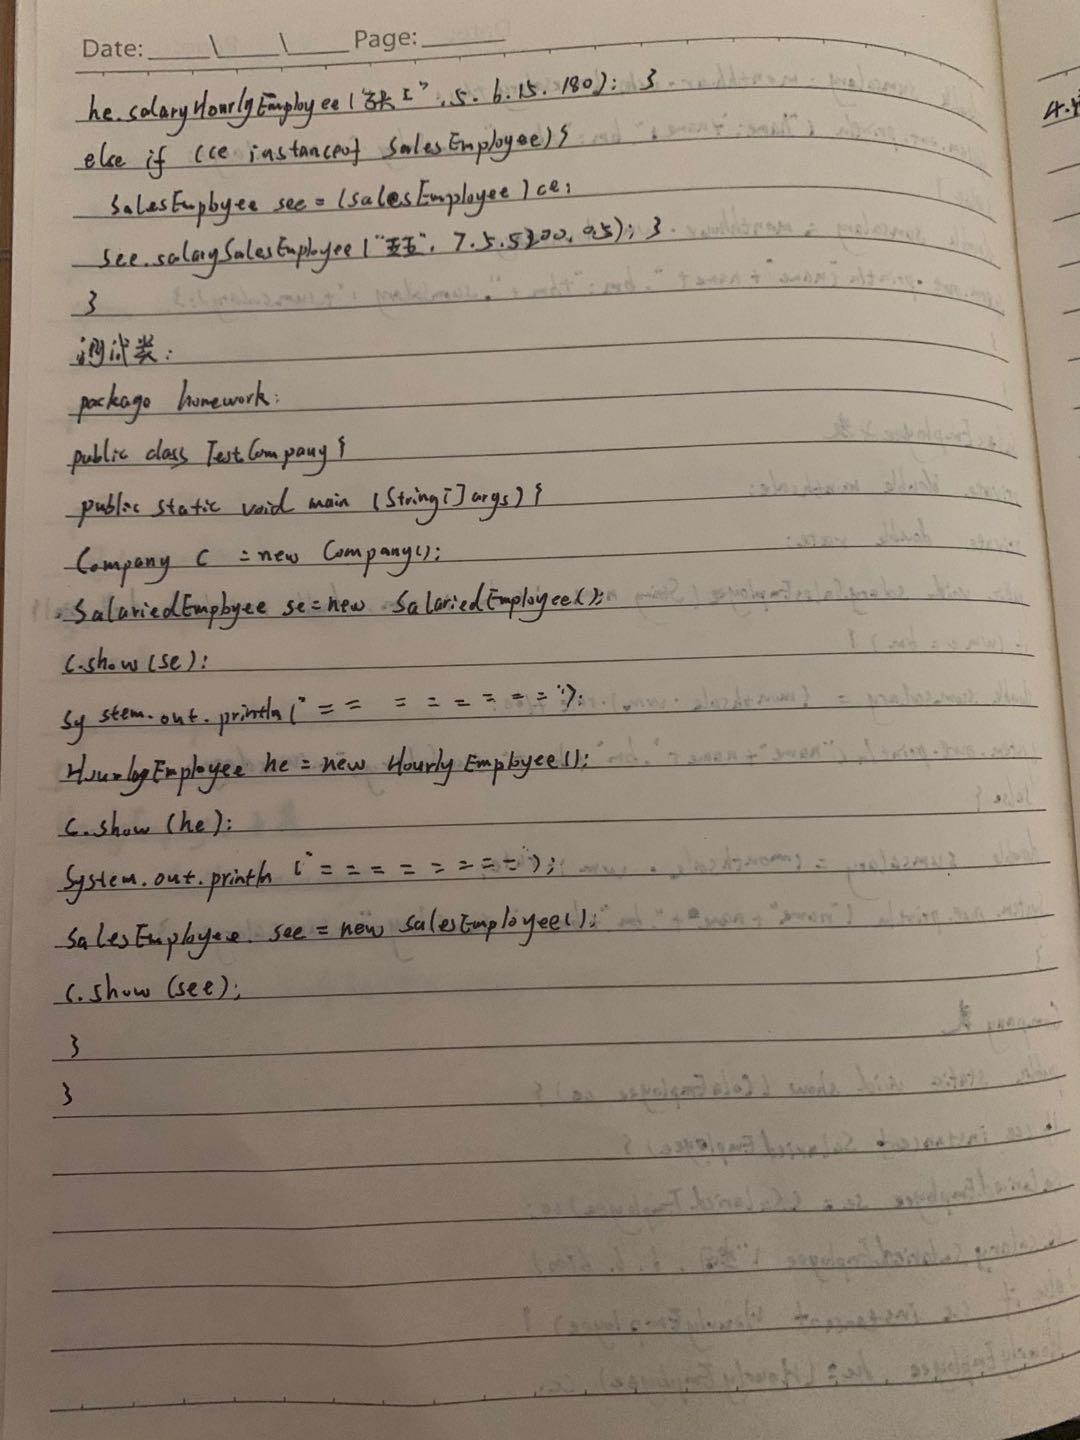 Date: \ \ Page:
he.salaryHourlyEmployee("张工", 5. 6.15. 180); }
else if (ce instanceof SalesEmployee){
SalesEmployee see = (SalesEmployee)ce;
see.salarySalesEmployee("王五", 7.5.5200, 0.5); }
}
测试类:
package homework;
public class TestCompany {
public static void main (String[] args) {
Company C = new Company();
SalariedEmployee se=new SalariedEmployee();
C.show(se);
System.out.println("== ======");
HourlyEmployee he = new HourlyEmployee();
C.show (he);
System.out.println ("========");
SalesEmployee see = new SalesEmployee();
C.show (see);
}
}